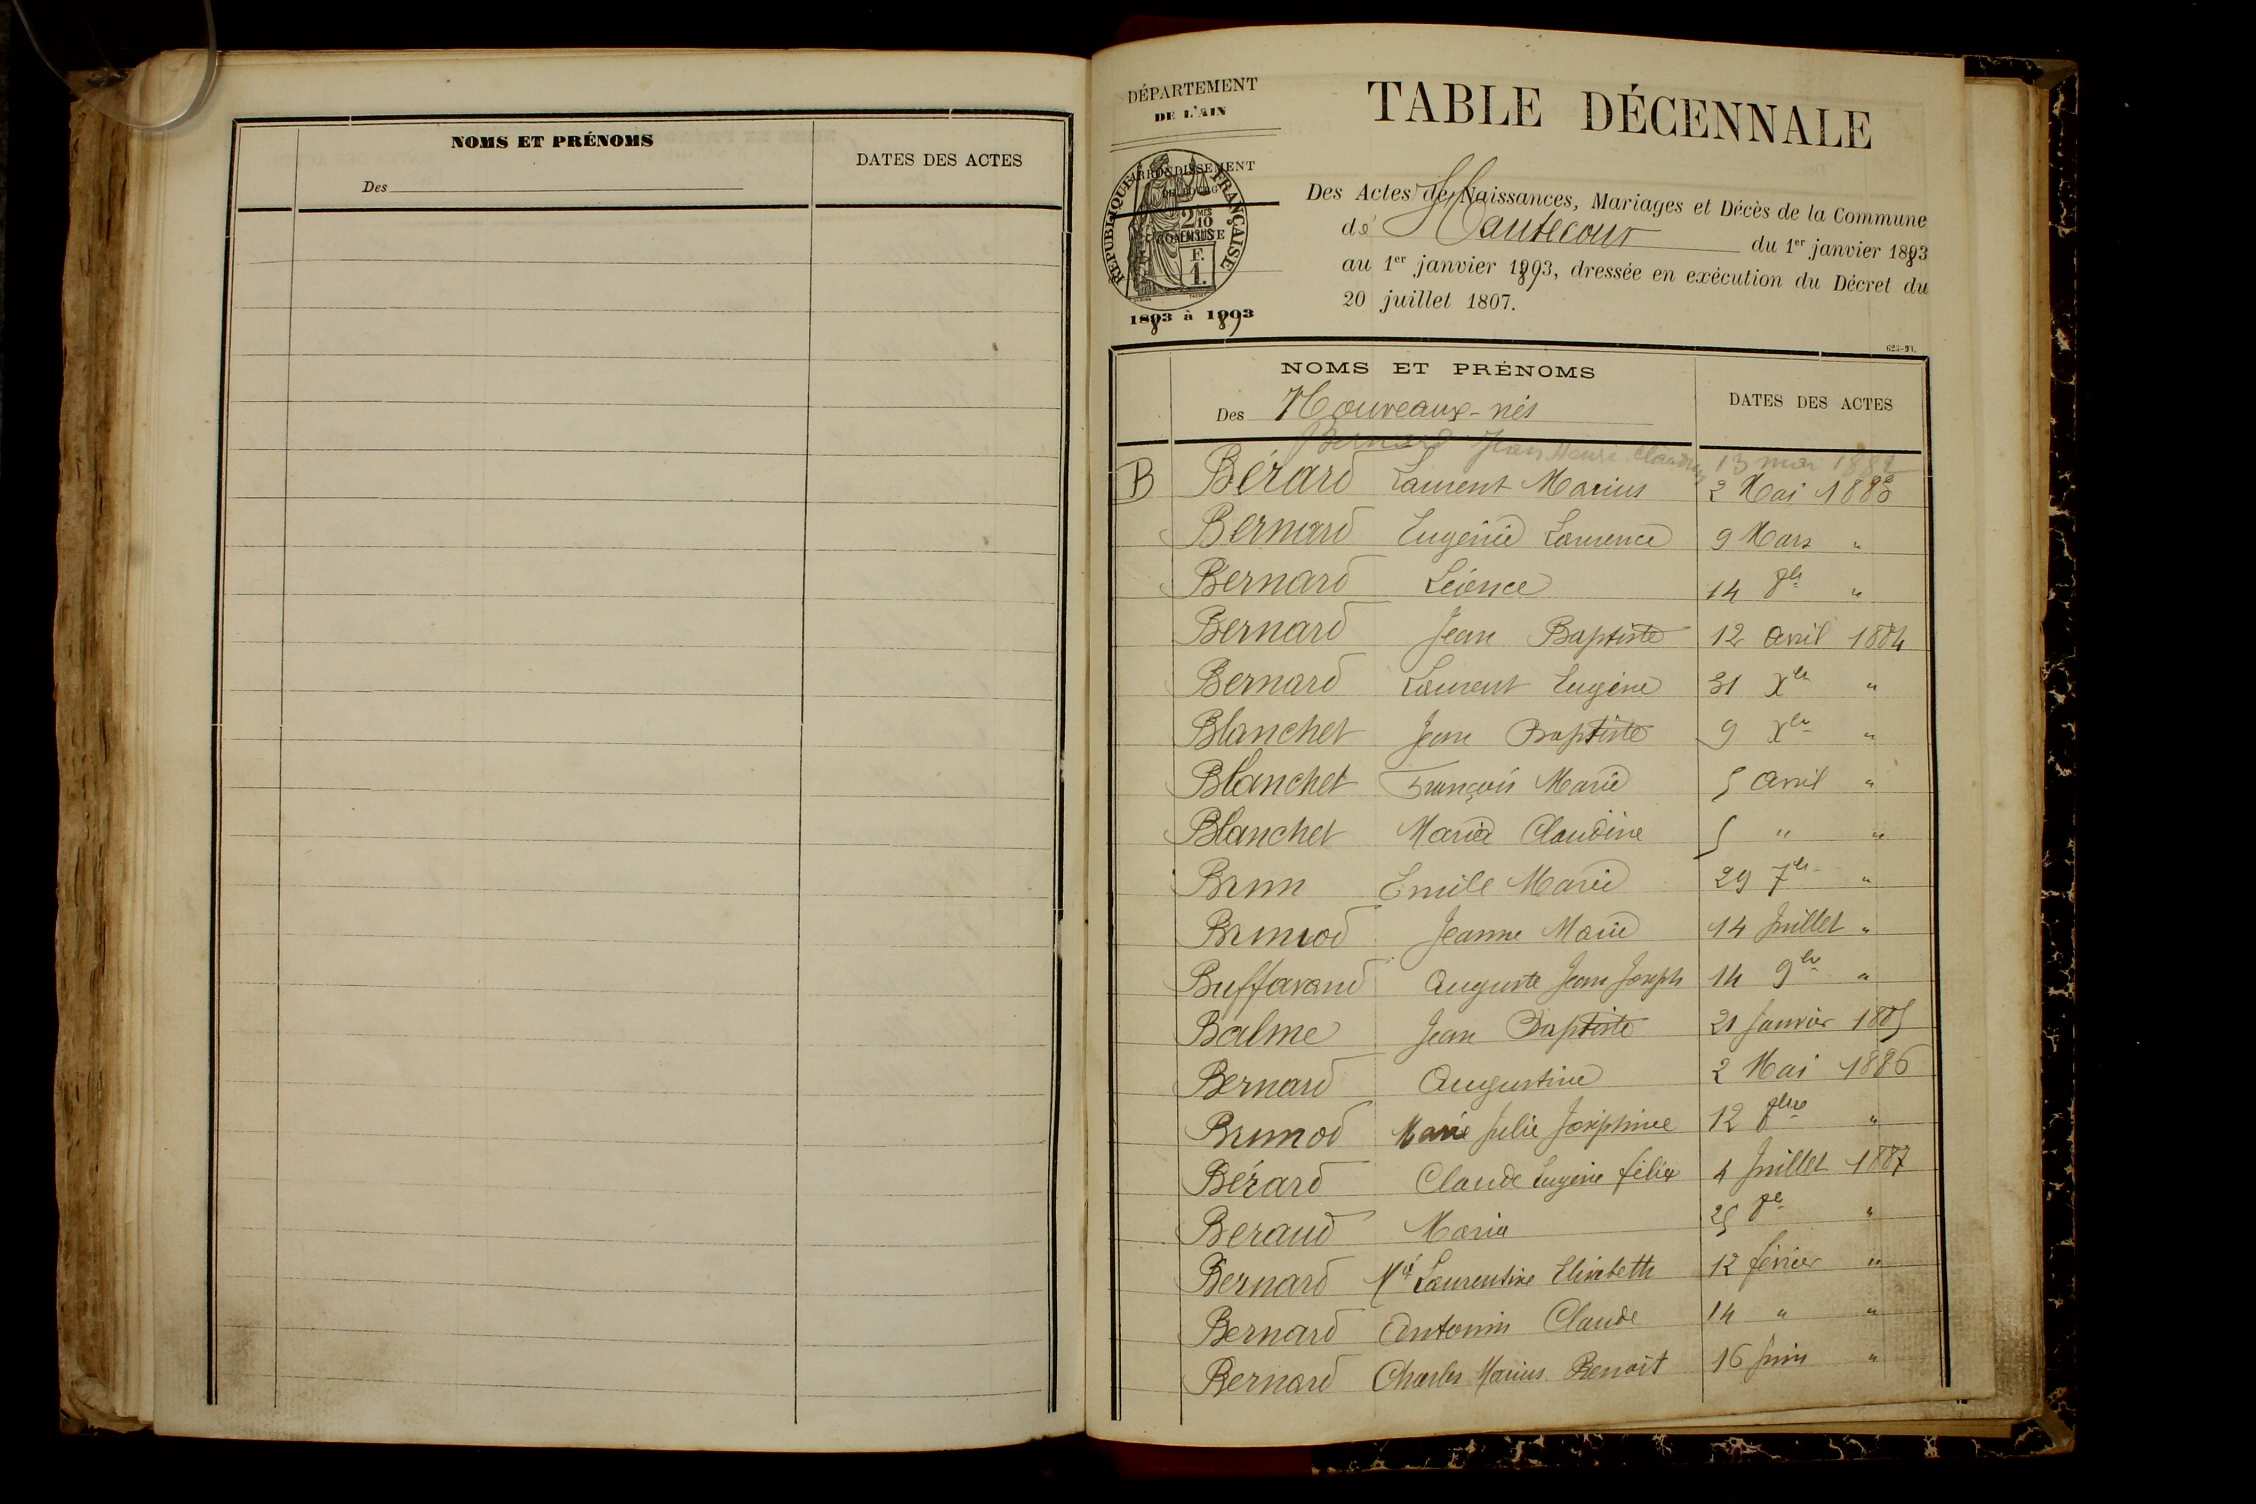 NOMS ET PRÉNOMS
Des
DATES DES ACTES
DÉPARTEMENT
DE L'AIN
ARRONDISSEMENT
RÉPUBLIQUE FRANÇAISE
2 MES 10
F.
1.
1883 à 1893
TABLE DÉCENNALE
Des Actes de Naissances, Mariages et Décès de la Commune
de Hautecour du 1er janvier 1883
au 1er janvier 1893, dressée en exécution du Décret du
20 juillet 1807.
NOMS ET PRÉNOMS
Des Nouveaux-nés
DATES DES ACTES
Bernard Jean 13 mai
B Bérard Laurent Marius 2 Mai 1883
Bernard Eugénie Laurence 9 Mars "
Bernard Léonce 14 8bre "
Bernard Jean Baptiste 12 avril 1884
Bernard Laurent Eugène 31 Xbre "
Blanchet Jean Baptiste 9 Xbre "
Blanchet François Marie 5 avril "
Blanchet Marie Claudine 5 " "
Brun Emile Marie 29 7bre "
Brunod Jeanne Marie 14 Juillet "
Buffavand Auguste Jean Joseph 14 9bre "
Balme Jean Baptiste 21 Janvier 1885
Bernard Augustine 2 Mai 1886
Brunod Marie Julie Joséphine 12 8bre "
Bérard Claude Eugène félix 4 Juillet 1887
Beraud Maria 25 8bre "
Bernard Mie Laurentine Elisabeth 12 février "
Bernard Antonin Claude 14 " "
Bernard Charles Marius Benoit 16 Juin "